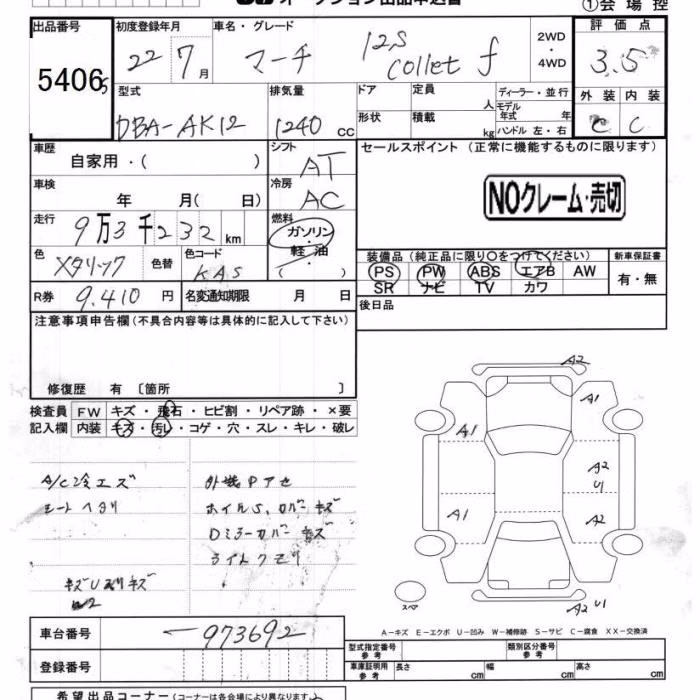 オークション出品申込書
①会場控
出品番号
5406
初度登録年月
22 7月
車名・グレード
マーチ
12S
collet f
2WD
・
4WD
評価点
3.5
型式
DBA-AK12
排気量
1240 cc
ドア
定員
人
ディーラー・並行
モデル年式 年
形状
積載
kg
ハンドル 左・右
外装 内装
C C
車歴
自家用・( )
シフト
AT
セールスポイント (正常に機能するものに限ります)
NOクレーム・売切
車検
年 月( 日)
冷房
AC
走行
9万3千232km
燃料
ガソリン
・
軽油
( )
色
メタリック
色替
色コード
KAS
装備品 (純正品に限り〇をつけてください)
新車保証書
PS PW ABS エアB AW
有・無
SR ナビ TV カワ
R券
9.410円
名変通知期限 月 日
後日品
注意事項申告欄(不具合内容等は具体的に記入して下さい)
修復歴 有 〔箇所 〕
検査員 FW キズ・飛石・ヒビ割・リペア跡・×要
記入欄 内装 キズ・汚レ・コゲ・穴・スレ・キレ・破レ
A/C冷エズ
シートヘタリ
ホイルS、カバーキズ
Dミラーカバーキズ
ライトクモリ
A2
A1
A1
A2
U1
A1
A2
スペア
A2 U1
A-キズ E-エクボ U-凹み W-補修跡 S-サビ C-腐食 XX-交換済
車台番号
-973692
型式指定番号
参考
類別区分番号
参考
登録番号
車庫証明用
参考
長さ cm
幅 cm
高さ cm
希望出品コーナー(コーナーは各会場により異なります